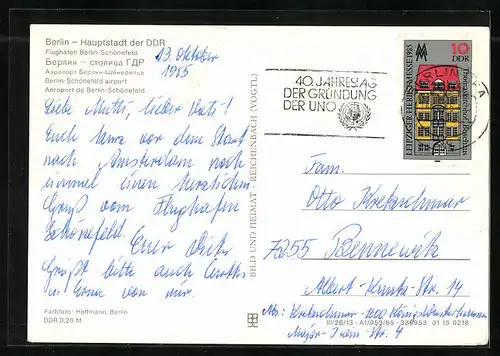 Berlin – Hauptstadt der DDR
Flughafen Berlin-Schönefeld
Берлин – столица ГДР
Аэропорт Берлин-Шёнефельд
Berlin-Schönefeld airport
Aéroport de Berlin-Schönefeld
13. Oktober
1985
Liebe Mutti, lieber Vati!
Euch kurz vor dem Start
nach Amsterdam noch
einmal einen herzlichen
Gruß vom Flughafen
Schönefeld. Euer
Grüßt bitte auch
u. von mir.
Farbfoto: Hoffmann, Berlin
DDR 0,20 M
BILD UND HEIMAT · REICHENBACH (VOGTL)
40. JAHRESTAG
DER GRÜNDUNG
DER UNO
BERLIN
LEIPZIGER HERBSTMESSE 1985
10
DDR
Fam.
Otto Kretzschmar
7255 Bennewitz
Albert-Kuntz-Str. 14
Abs: Kretzschmar 1600 Königs Wusterhausen
Str. 4
III/26/13 A1/953/85 01 15 0218